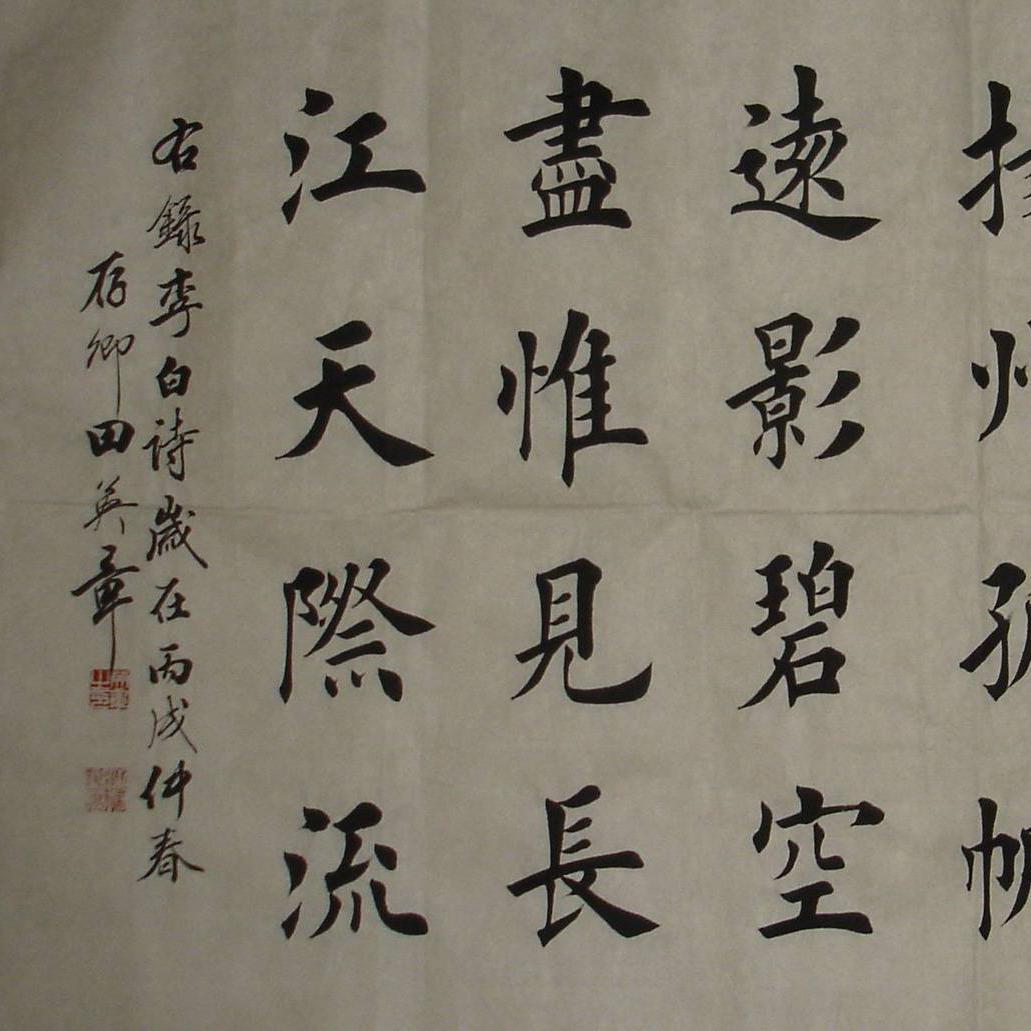 遠影碧空
盡惟見長
江天際流
右錄李白詩歲在丙戌仲春
存卿田英章